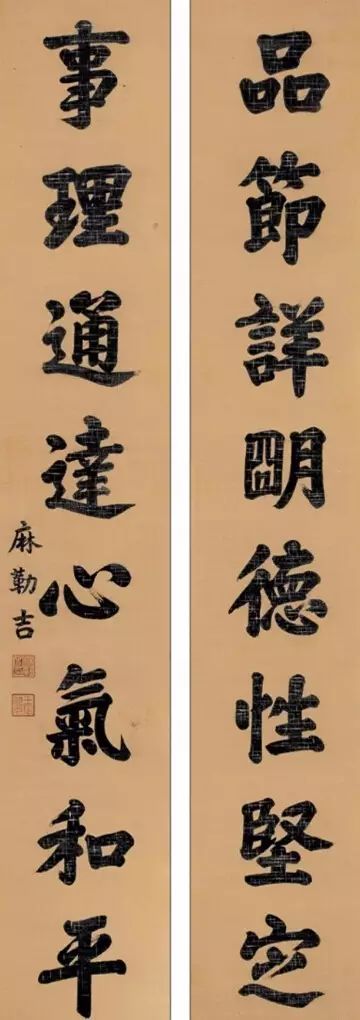 品節詳明德性堅定
事理通達心氣和平
麻勒吉